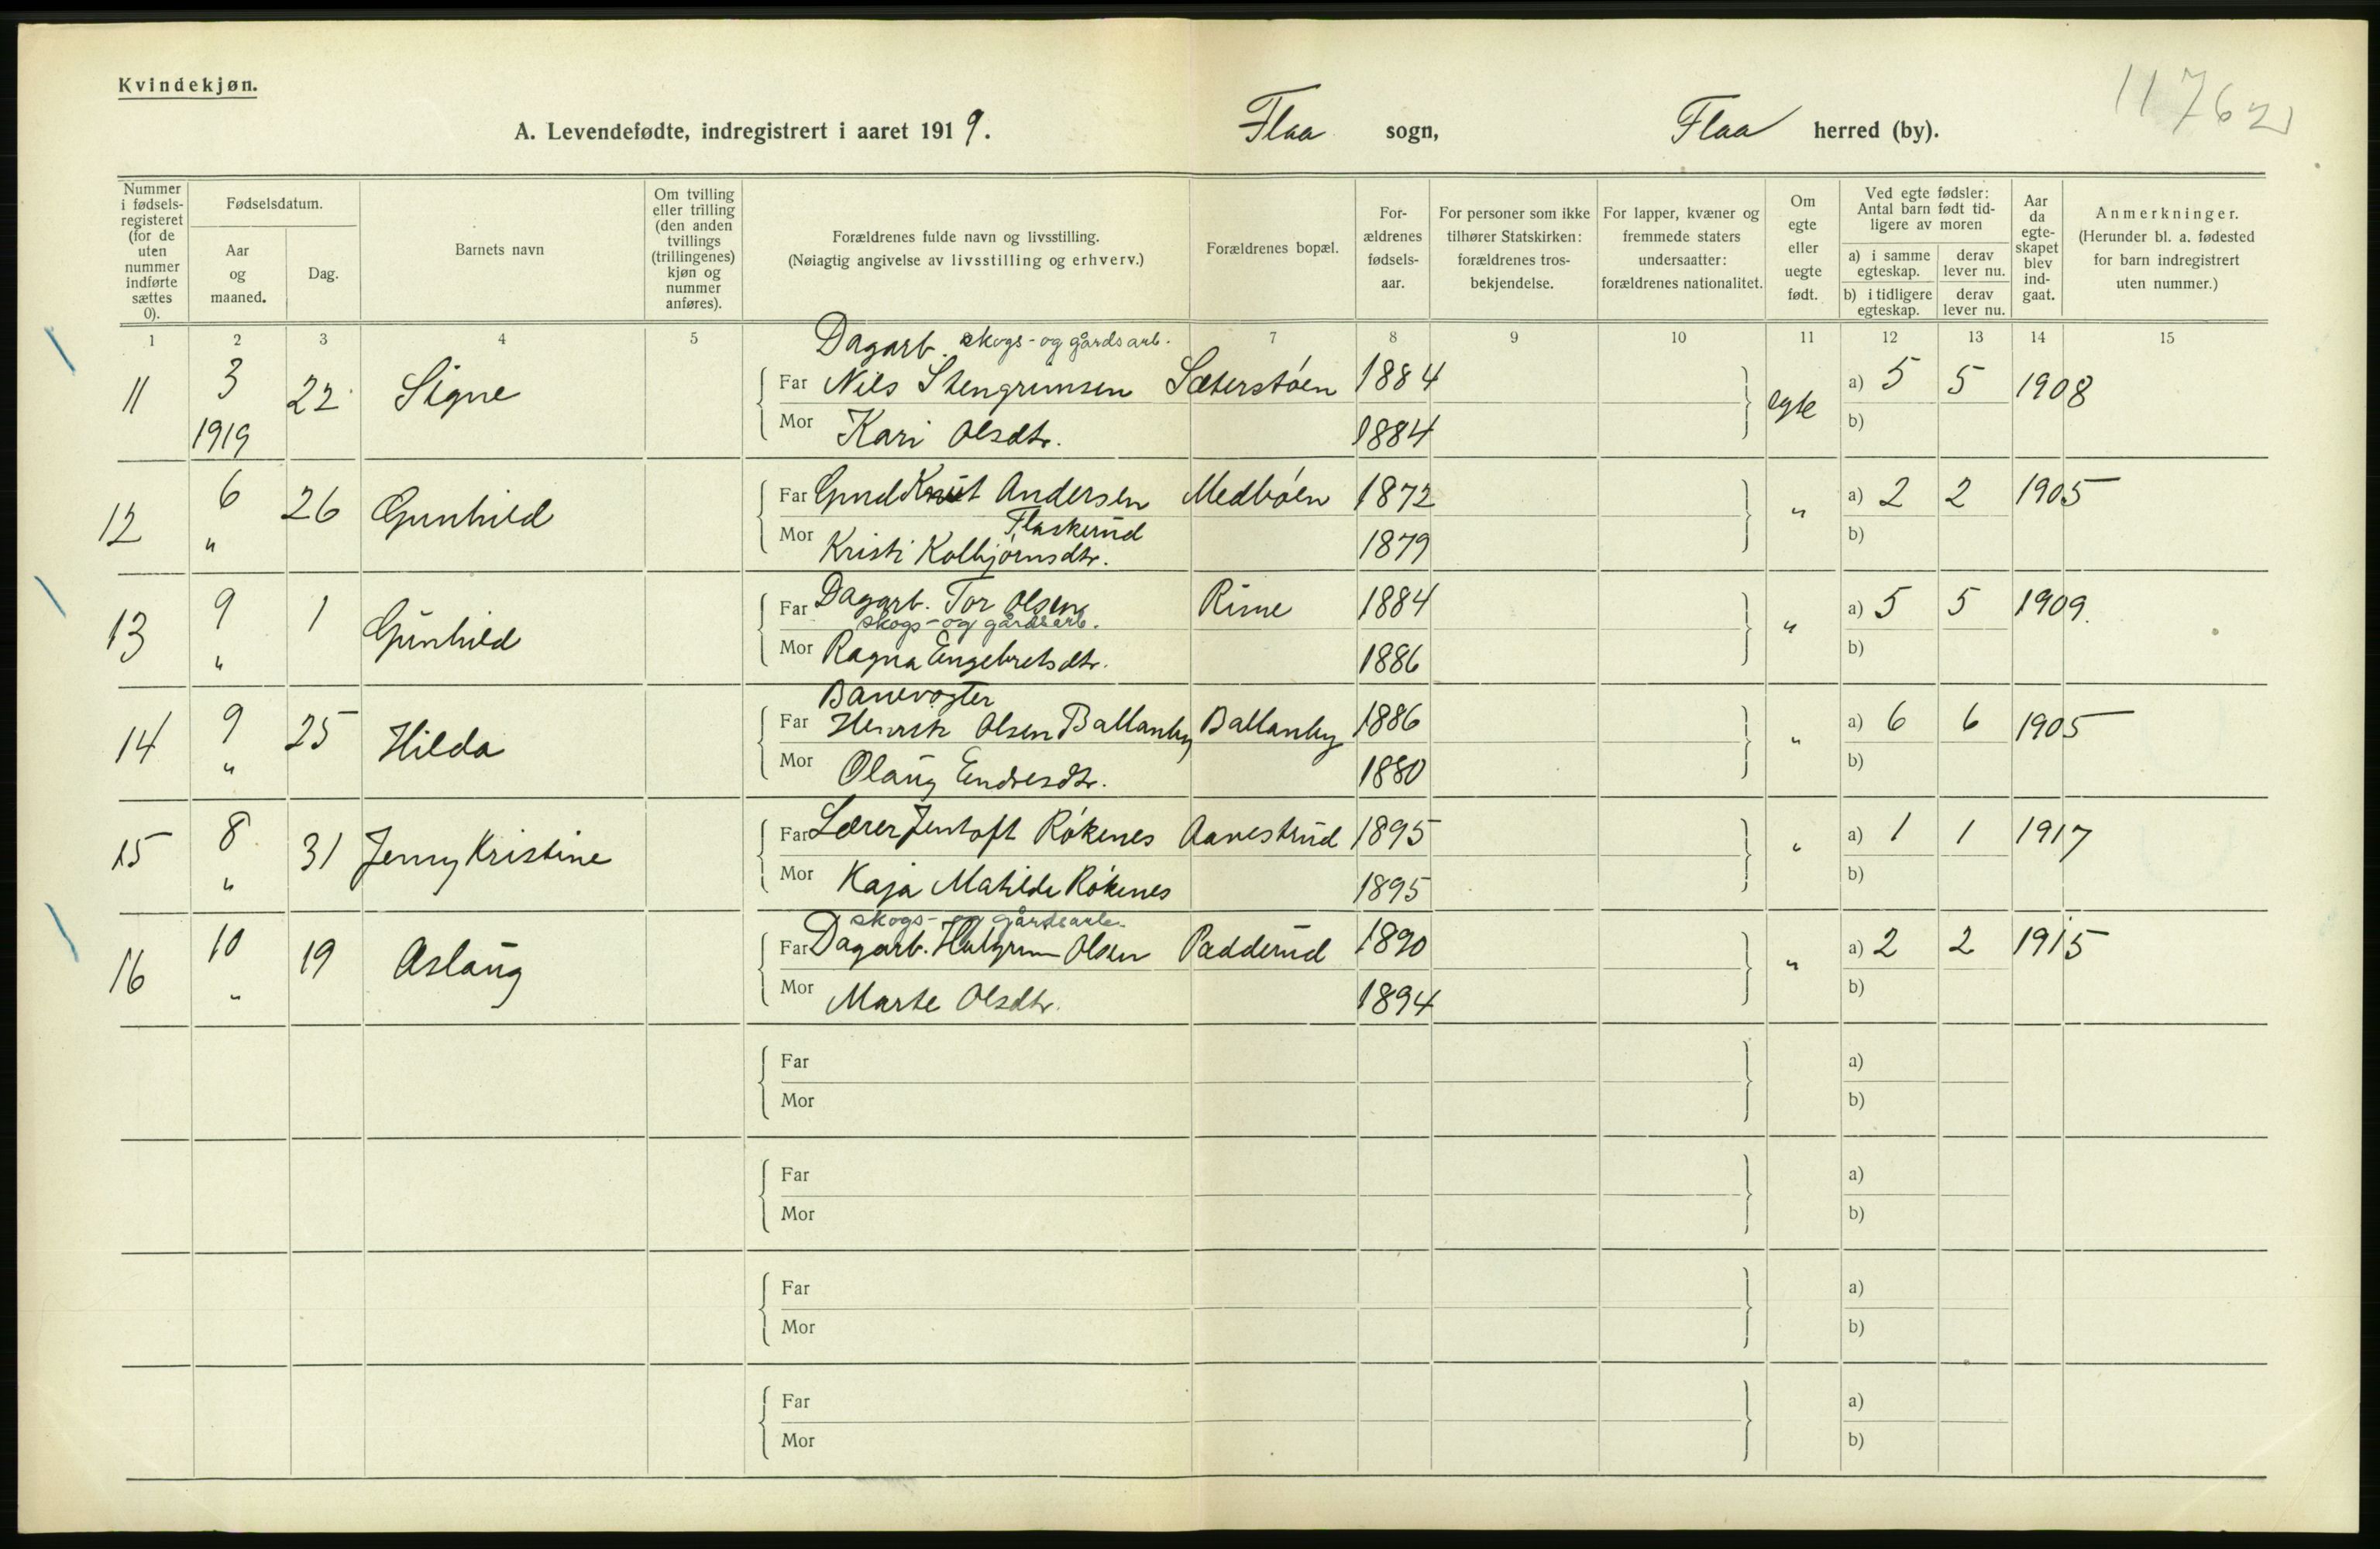 Kvindekjøn.
11762
A. Levendefødte, indregistrert i aaret 1919. Flaa sogn, Flaa herred (by).
Nummer i fødsels-registeret (for de uten nummer indførte sættes 0).
Fødselsdatum.
Aar og maaned.
Dag.
Barnets navn
Om tvilling eller trilling (den anden tvillings (trillingenes) kjøn og nummer anføres).
Forældrenes fulde navn og livsstilling.
(Nøiagtig angivelse av livsstilling og erhverv.)
Forældrenes bopæl.
For-ældrenes fødsels-aar.
For personer som ikke tilhører Statskirken: forældrenes tros-bekjendelse.
For lapper, kvæner og fremmede staters undersaatter: forældrenes nationalitet.
Om egte eller uegte født.
Ved egte fødsler: Antal barn født tid-ligere av moren
a) i samme egteskap. derav lever nu.
b) i tidligere egteskap. derav lever nu.
Aar da egte-skapet blev ind-gaat.
Anmerkninger.
(Herunder bl. a. fødested for barn indregistrert uten nummer.)
1 2 3 4 5 7 8 9 10 11 12 13 14 15
Dagarb. skogs- og gårdsarb.
11 3 22 Signe Far Nils Stengrimsen Sæterstøen 1884 egte a) 5 5 1908
1919 Mor Kari Olsdtr. 1884 b)
12 6 26 Gunhild Far Knut Andersen Medbøen 1872 " a) 2 2 1905
Flaskerud
" Mor Kristi Kolbjørnsdtr. 1879 b)
13 9 1 Gunhild Far Dagarb. Tor Olsen Rime 1884 " a) 5 5 1909.
skogs- og gårdsarb.
" Mor Ragna Engebretsdtr. 1886 b)
Banevogter
14 9 25 Hilda Far Henrik Olsen Ballanby Ballanby 1886 " a) 6 6 1905
" Mor Olaug Endresdtr. 1880 b)
15 8 31 Jenny Kristine Far Lærer Jentoft Røkenes Aavestrud 1895 " a) 1 1 1917
" Mor Kaja Matilde Røkenes 1895 b)
skogs- og gårdsarb.
16 10 19 Aslaug Far Dagarb. Olsen Padderud 1890 " a) 2 2 1915
" Mor Marte Olsdtr. 1894 b)
Far a)
Mor b)
Far a)
Mor b)
Far a)
Mor b)
Far a)
Mor b)